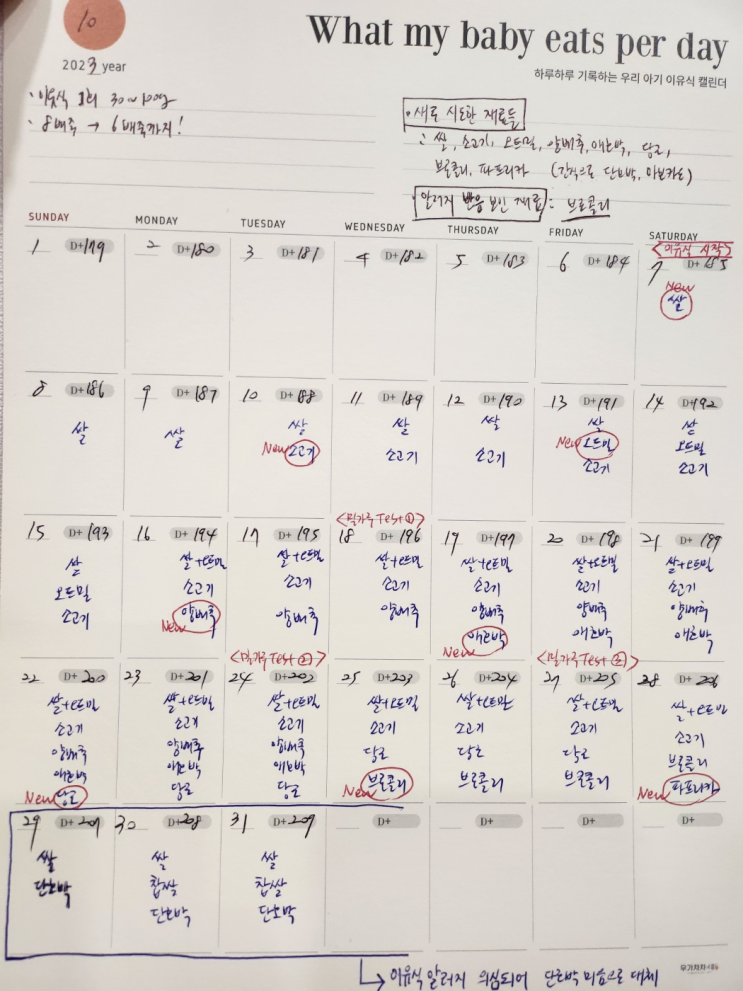 10
What my baby eats per day
2023 year
하루하루 기록하는 우리 아기 이유식 캘린더
· 이유식 1회 30~100g
· 8배죽 → 6배죽까지!
· 새로 시도한 재료들
: 쌀, 소고기, 오트밀, 양배추, 애호박, 당근,
브로콜리, 파프리카 (간식으로 단호박, 아보카도)
알러지 반응 보인 재료 : 브로콜리
SUNDAY MONDAY TUESDAY WEDNESDAY THURSDAY FRIDAY SATURDAY
<이유식 시작>
1 D+179
2 D+180
3 D+181
4 D+182
5 D+183
6 D+184
7 D+185
New
쌀
8 D+186
쌀
9 D+187
쌀
10 D+188
쌀
New 소고기
11 D+189
쌀
소고기
12 D+190
쌀
소고기
13 D+191
쌀
New 오트밀
소고기
14 D+192
쌀
오트밀
소고기
15 D+193
쌀
오트밀
소고기
16 D+194
쌀+오트밀
소고기
양배추
New
17 D+195
쌀+오트밀
소고기
양배추
<밀가루 Test ①>
18 D+196
쌀+오트밀
소고기
양배추
19 D+197
쌀+오트밀
소고기
양배추
애호박
New
20 D+198
쌀+오트밀
소고기
양배추
애호박
21 D+199
쌀+오트밀
소고기
양배추
애호박
22 D+200
쌀+오트밀
소고기
양배추
애호박
New 당근
23 D+201
쌀+오트밀
소고기
양배추
애호박
당근
<밀가루 Test ②>
24 D+202
쌀+오트밀
소고기
양배추
애호박
당근
25 D+203
쌀+오트밀
소고기
당근
New 브로콜리
26 D+204
쌀+오트밀
소고기
당근
브로콜리
<밀가루 Test ③>
27 D+205
쌀+오트밀
소고기
당근
브로콜리
28 D+206
쌀+오트밀
소고기
브로콜리
New 파프리카
29 D+207
쌀
단호박
30 D+208
쌀
찹쌀
단호박
31 D+209
쌀
찹쌀
단호박
D+
D+
D+
D+
→ 이유식 알러지 의심되어 단호박 미음으로 대체